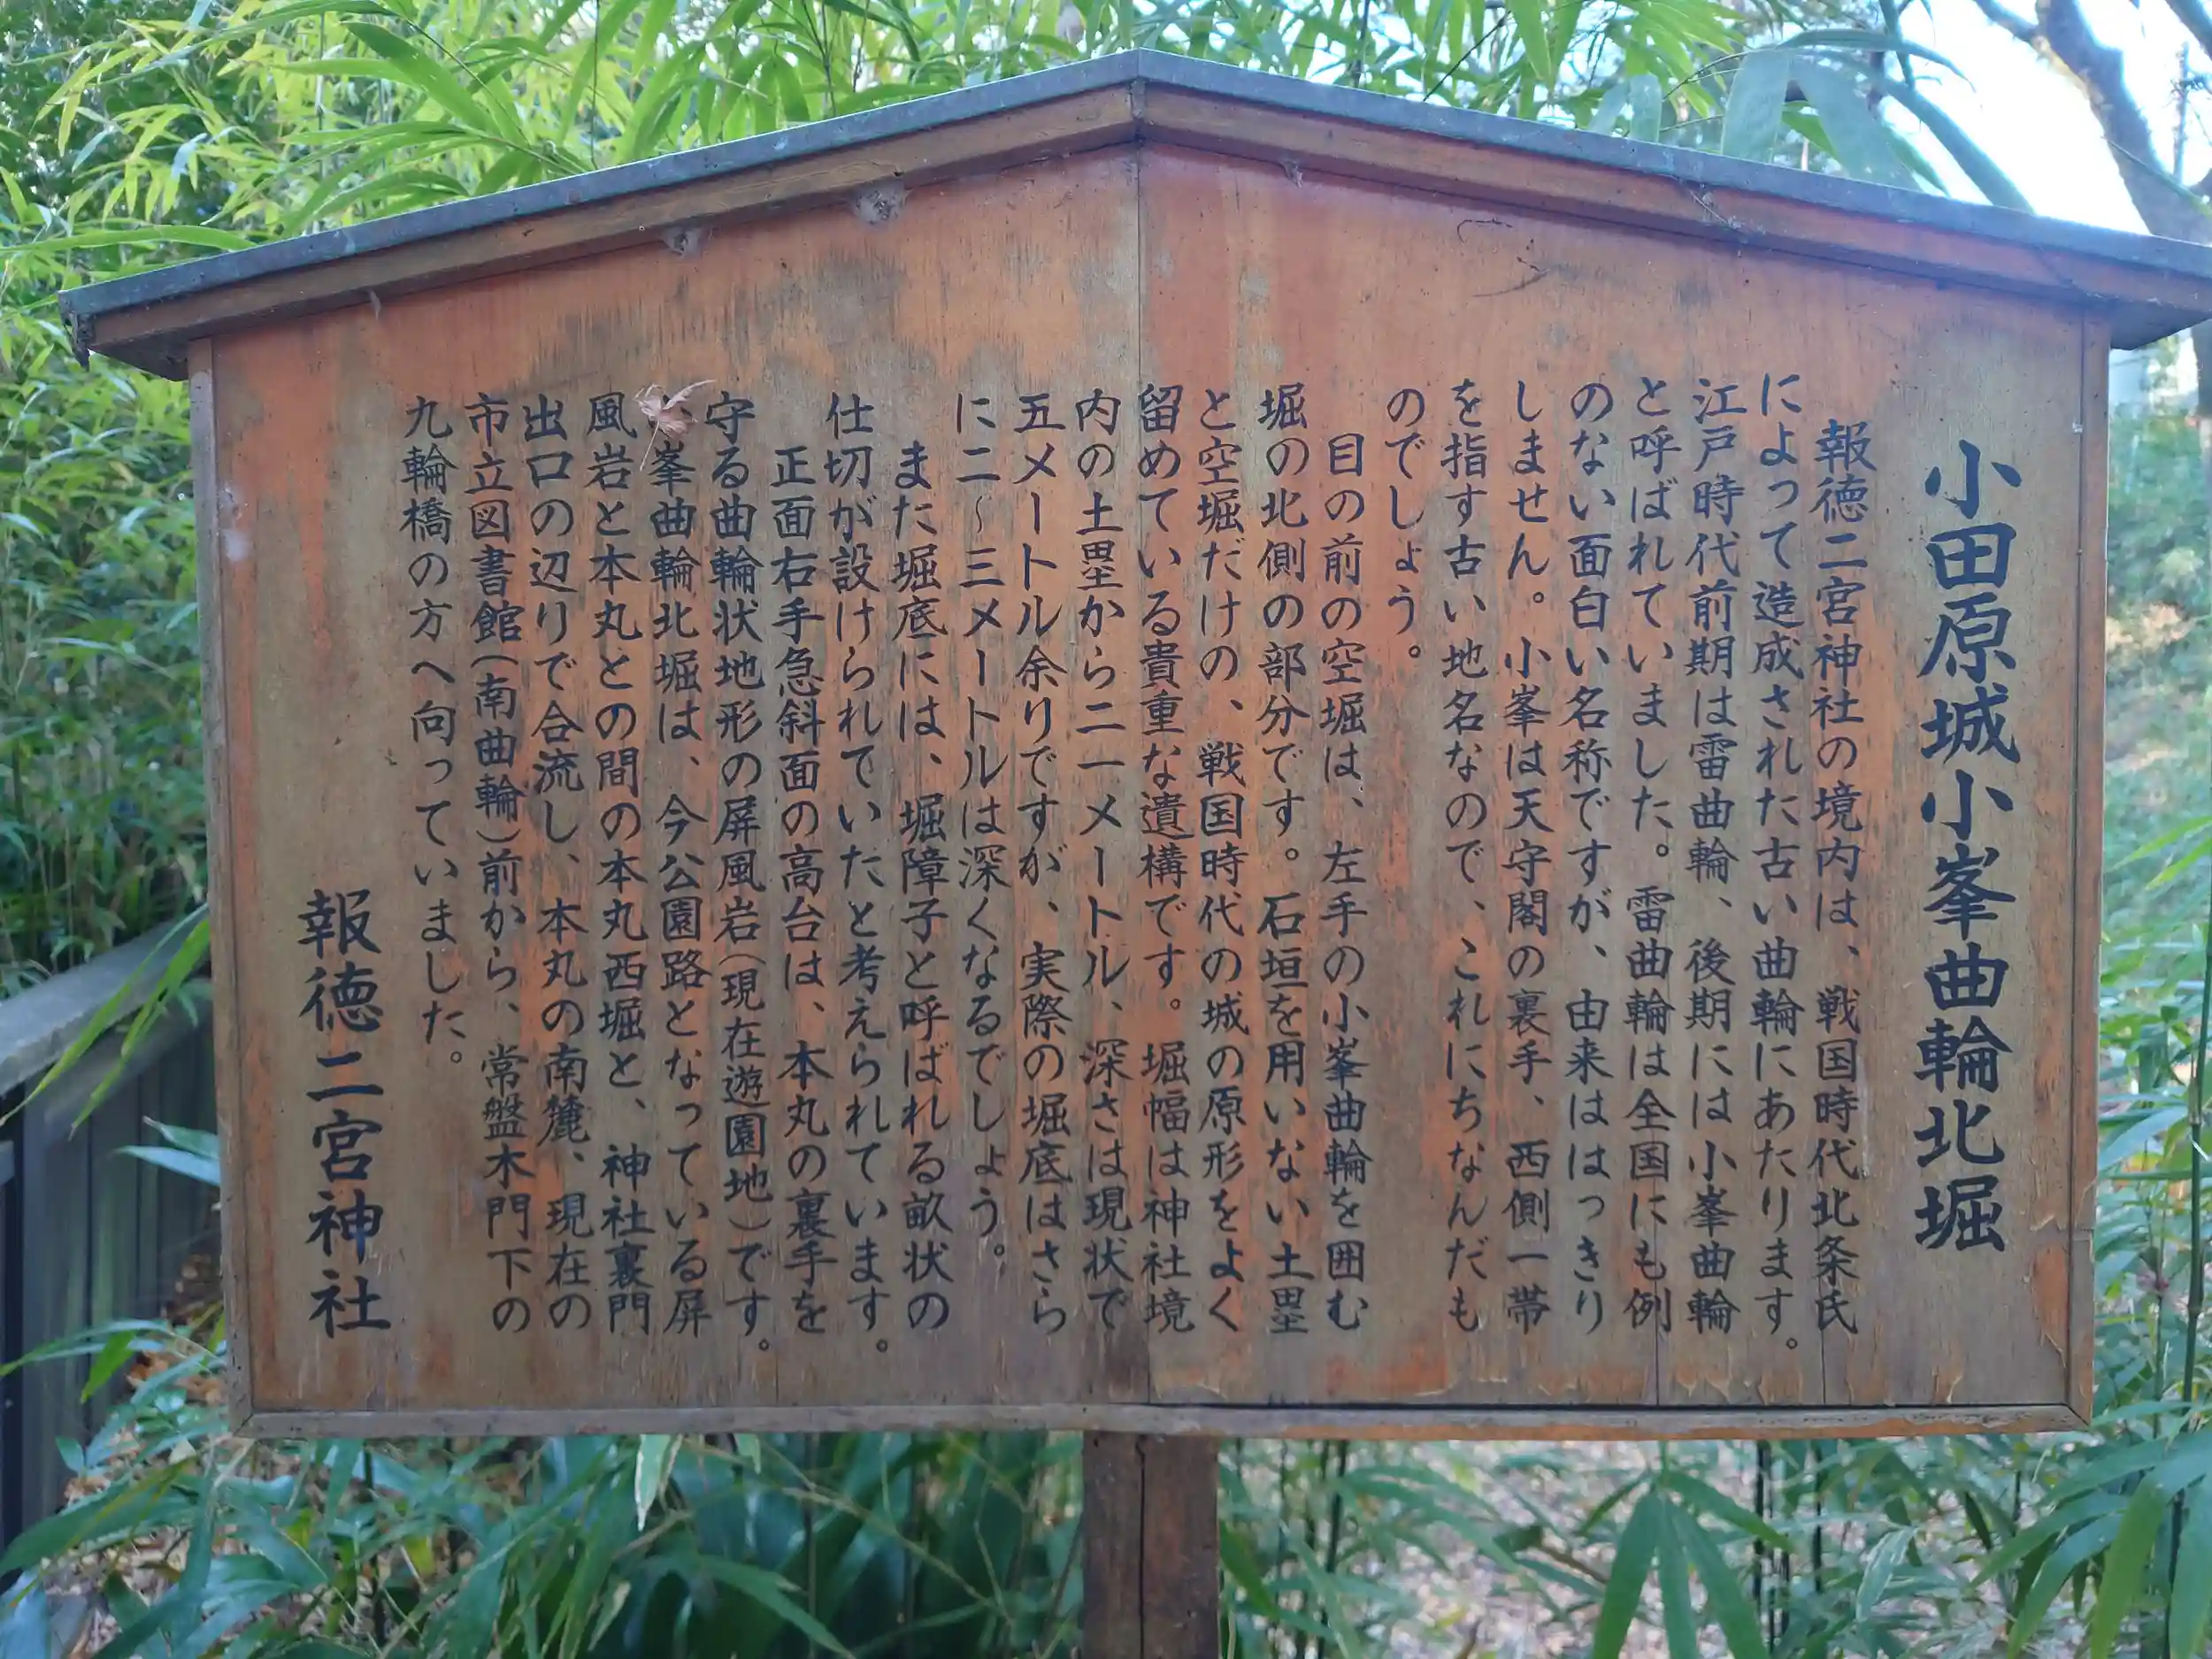 小田原城小峯曲輪北堀
報徳二宮神社の境内は、戦国時代北条氏
によって造成された古い曲輪にあたります。
江戸時代前期は雷曲輪、後期には小峯曲輪
と呼ばれていました。雷曲輪は全国にも例
のない面白い名称ですが、由来ははっきり
しません。小峯は天守閣の裏手、西側一帯
を指す古い地名なので、これにちなんだも
のでしょう。
目の前の空堀は、左手の小峯曲輪を囲む
堀の北側の部分です。石垣を用いない土塁
と空堀だけの、戦国時代の城の原形をよく
留めている貴重な遺構です。堀幅は神社境
内の土塁から二一メートル、深さは現状で
五メートル余りですが、実際の堀底はさら
に二〜三メートルは深くなるでしょう。
また堀底には、堀障子と呼ばれる畝状の
仕切が設けられていたと考えられています。
正面右手急斜面の高台は、本丸の裏手を
守る曲輪状地形の屏風岩(現在遊園地)です。
峯曲輪北堀は、今公園路となっている屏
風岩と本丸との間の本丸西堀と、神社裏門
出口の辺りで合流し、本丸の南麓、現在の
市立図書館(南曲輪)前から、常盤木門下の
九輪橋の方へ向っていました。
報徳二宮神社